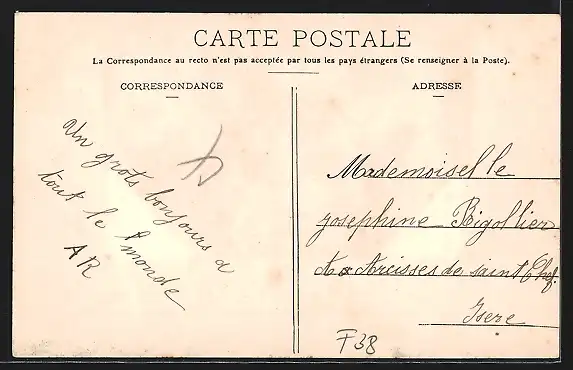 CARTE POSTALE
La Correspondance au recto n'est pas acceptée par tous les pays étrangers (Se renseigner à la Poste).
CORRESPONDANCE
Un grots bonjours a
tout le monde
AR
ADRESSE
Mademoiselle
josephine Rigollier
Arcisses de saint Chef.
Isere
F38